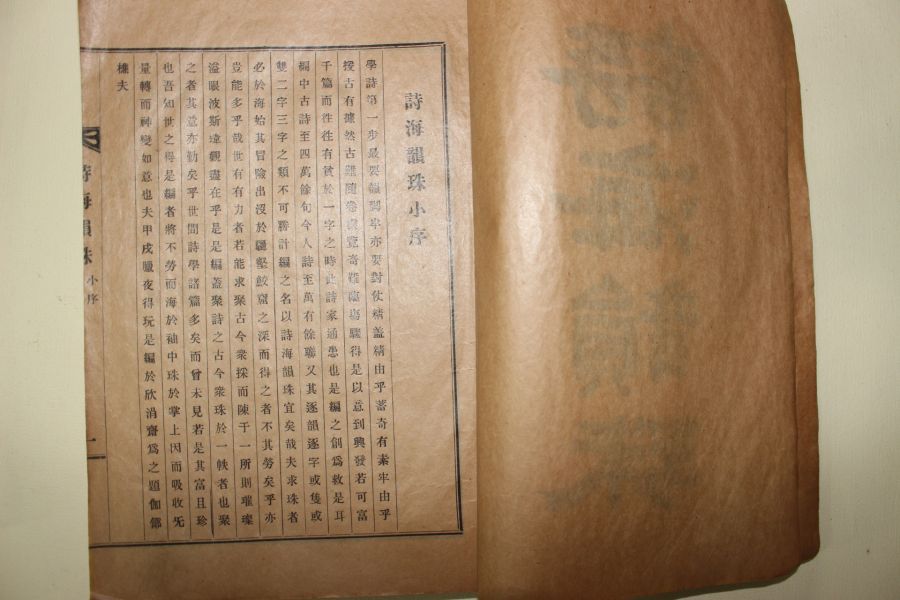 詩海韻珠小序
學詩第一步最要韻脚牢亦要對仗精盖精由乎蓄奇有素牢由乎
援古有據然古雖隨卷覽奇難臨塲驟得是以意到興發若可富
千篇而徃徃有窘於一字之時此詩家通患也是編之創爲救是耳
編中古詩至四萬餘句今人詩至萬有餘聯又其逐韻逐字或隻或
雙二字三字之類不可勝計編之名以詩海韻珠宜矣哉夫求珠者
必於海始其冒險出沒於驪壑鮫窟之深而得之者不其勞矣乎亦
豈能多乎哉世有有力者若能求聚古今衆採而陳于一所則璀璨
溢眼波斯遠觀盡在乎是是編蓋聚詩之古今衆珠於一帙者也聚
之者其意亦勤矣乎世間詩學諸篇多矣而曾未見若是其富且珍
也吾知世之得是編者將不勞而海於袖中珠於掌上因而吸收旡
量轉而神變如意也夫甲戌臘夜得玩是編於欣涓齋爲之題伽倻
樵夫
詩海韻珠 小序
一